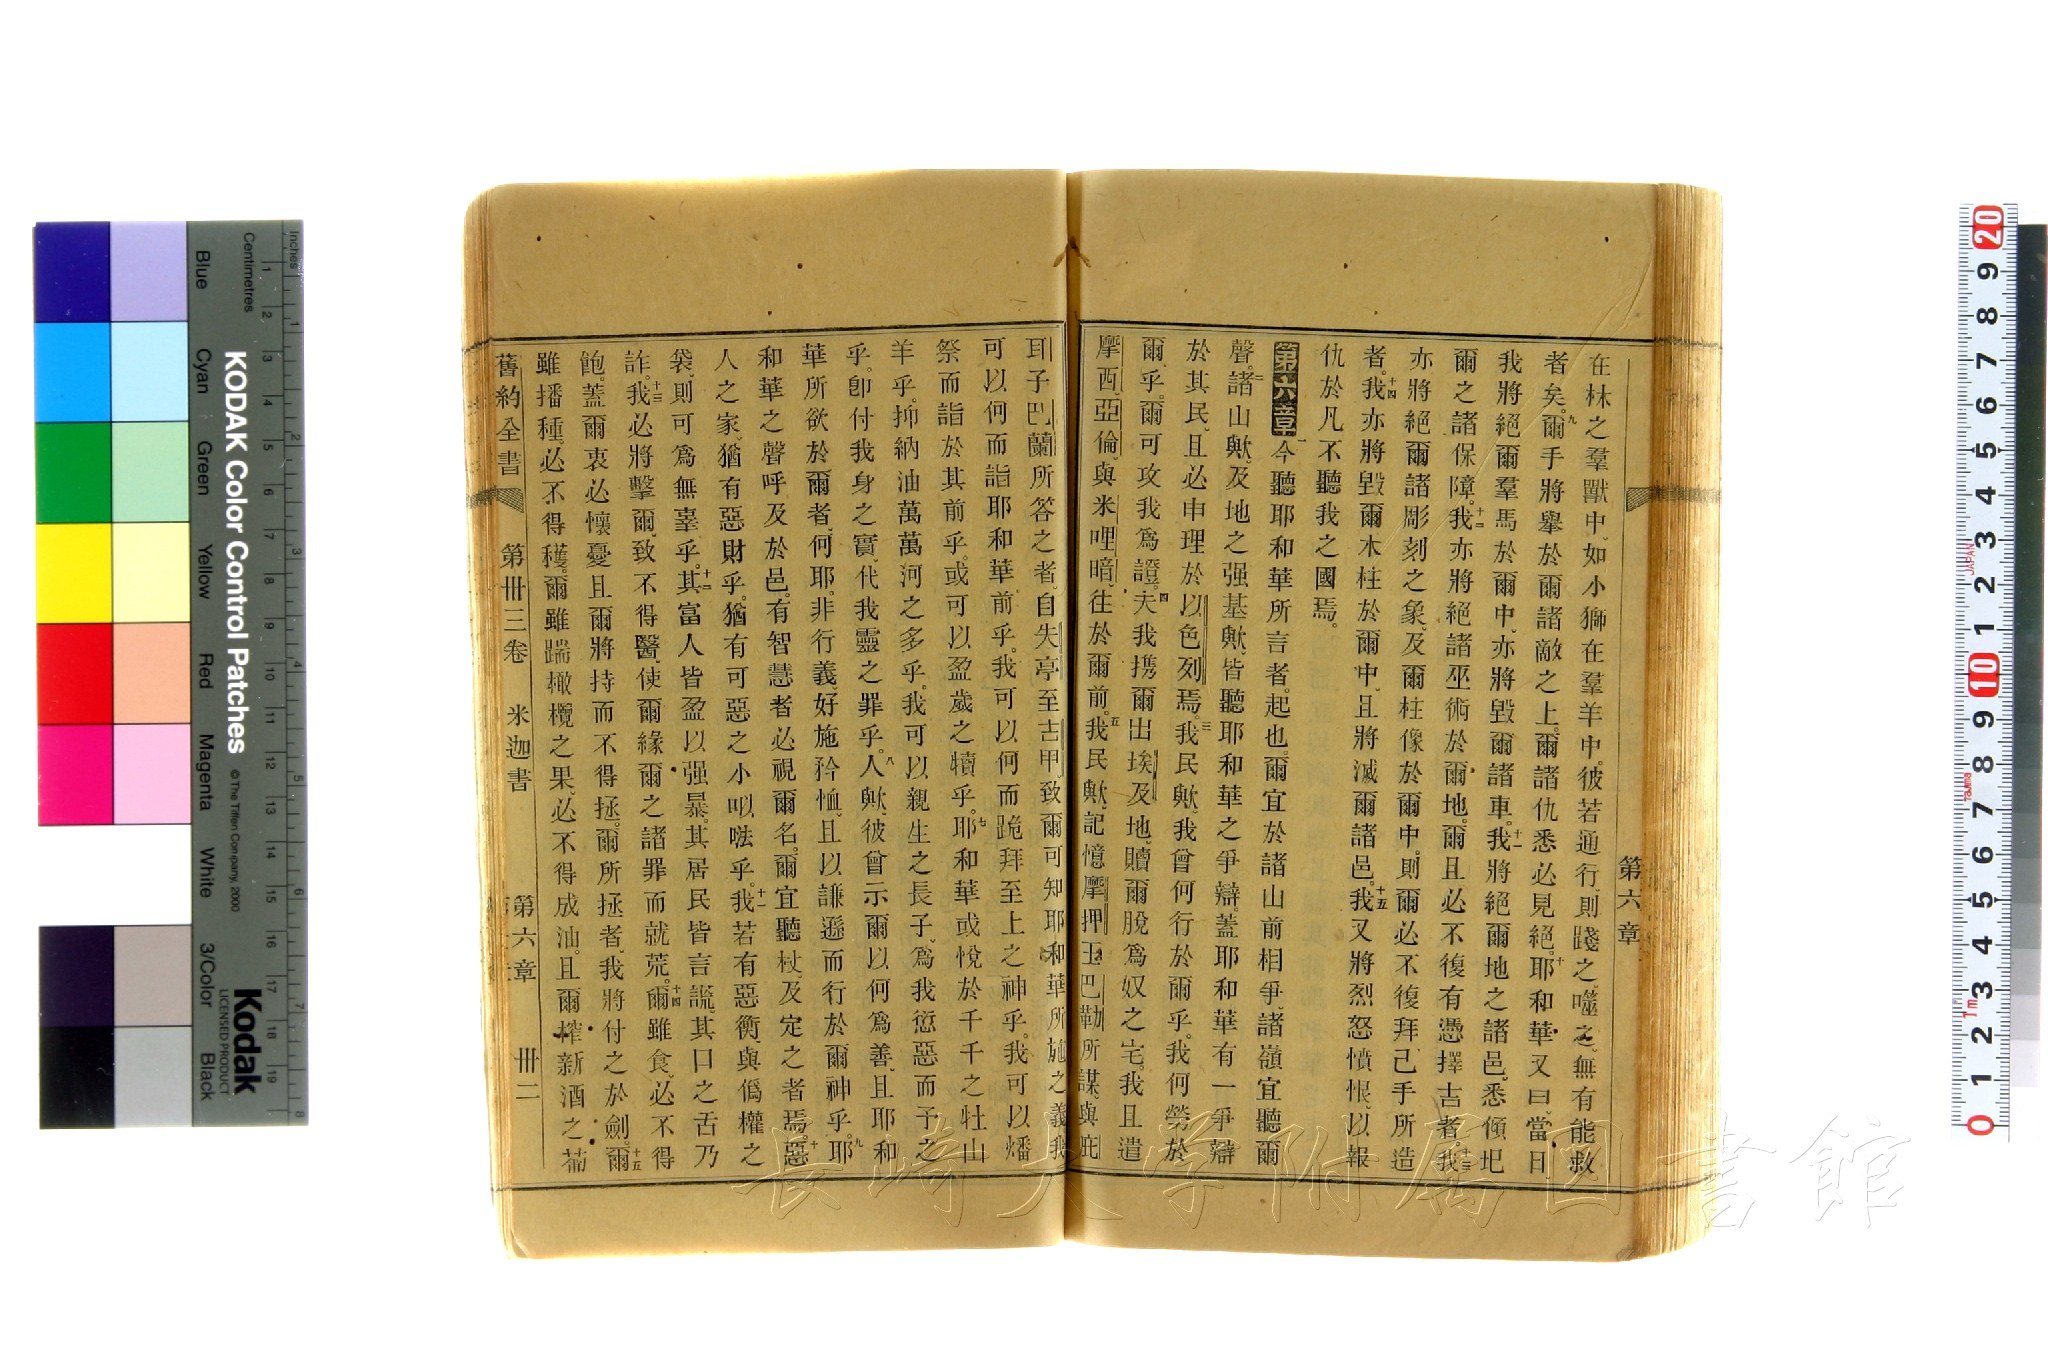 第六章
在林之羣獸中、如小獅在羣羊中。彼若通行、則踐之、噬之、無有能救
者矣。九爾手將舉於爾諸敵之上。爾諸仇悉必見絕。十耶和華又曰、當日
我將絕爾羣馬於爾中、亦將毀爾諸車。十一我將絕爾地之諸邑。悉傾圯
爾之諸保障。十二我亦將絕諸巫術於爾地。爾且必不復有憑擇吉者。十三我
亦將絕爾諸彫刻之象、及爾柱像於爾中。則爾必不復拜己手所造
者。十四我亦將毀爾木柱於爾中、且將滅爾諸邑。十五我又將烈怒憤恨、以報
仇於凡不聽我之國焉。
第六章一今聽耶和華所言者。起也。爾宜於諸山前相爭、諸嶺宜聽爾
聲。二諸山歟、及地之强基歟、皆聽耶和華之爭辯。蓋耶和華有一爭辯
於其民、且必申理於以色列焉。三我民歟、我曾何行於爾乎。我何勞於
爾乎。爾可攻我爲證。四夫我携爾出埃及地、贖爾脫爲奴之宅。我且遣
摩西、亞倫、與米哩暗、往於爾前。五我民歟、記憶摩押王巴勒所謀、與庇
耳子巴蘭所答之者、自失亭至吉甲、致爾可知耶和華所施之義。六我
可以何而詣耶和華前乎。我可以何而跪拜至上之神乎。我可以燔
祭而詣於其前乎。或可以盈歲之犢乎。七耶和華或悅於千千之牡山
羊乎。抑納油萬萬河之多乎。我可以親生之長子、爲我愆惡而予之
乎。卽付我身之實、代我靈之罪乎。八人歟、彼曾示爾以何爲善、且耶和
華所欲於爾者、何耶。非行義、好施矜恤、且以謙遜而行於爾神乎。九耶
和華之聲呼及於邑。有智慧者必視爾名。爾宜聽杖、及定之者焉。十惡
人之家、猶有惡財乎。猶有可惡之小㕥㗎乎。十一我若有惡衡、與僞權之
袋、則可爲無辜乎。十二其富人皆盈以强暴。其居民皆言謊、其口之舌乃
詐。十三我必將擊爾、致不得醫、使爾緣爾之諸罪而就荒。十四爾雖食、必不得
飽。蓋爾衷必懷憂、且爾將持而不得拯。爾所拯者、我將付之於劍。十五爾
雖播種、必不得穫。爾雖踹橄欖之果、必不得成油。且爾搾新酒之葡
舊約全書 第卅三卷 米迦書 第六章 卅二
KODAK Color Control Patches
© The Tiffen Company, 2000
Kodak
LICENSED PRODUCT
Inches
Centimetres
Blue
Cyan
Green
Yellow
Red
Magenta
White
3/Color
Black
長崎大学附属図書館